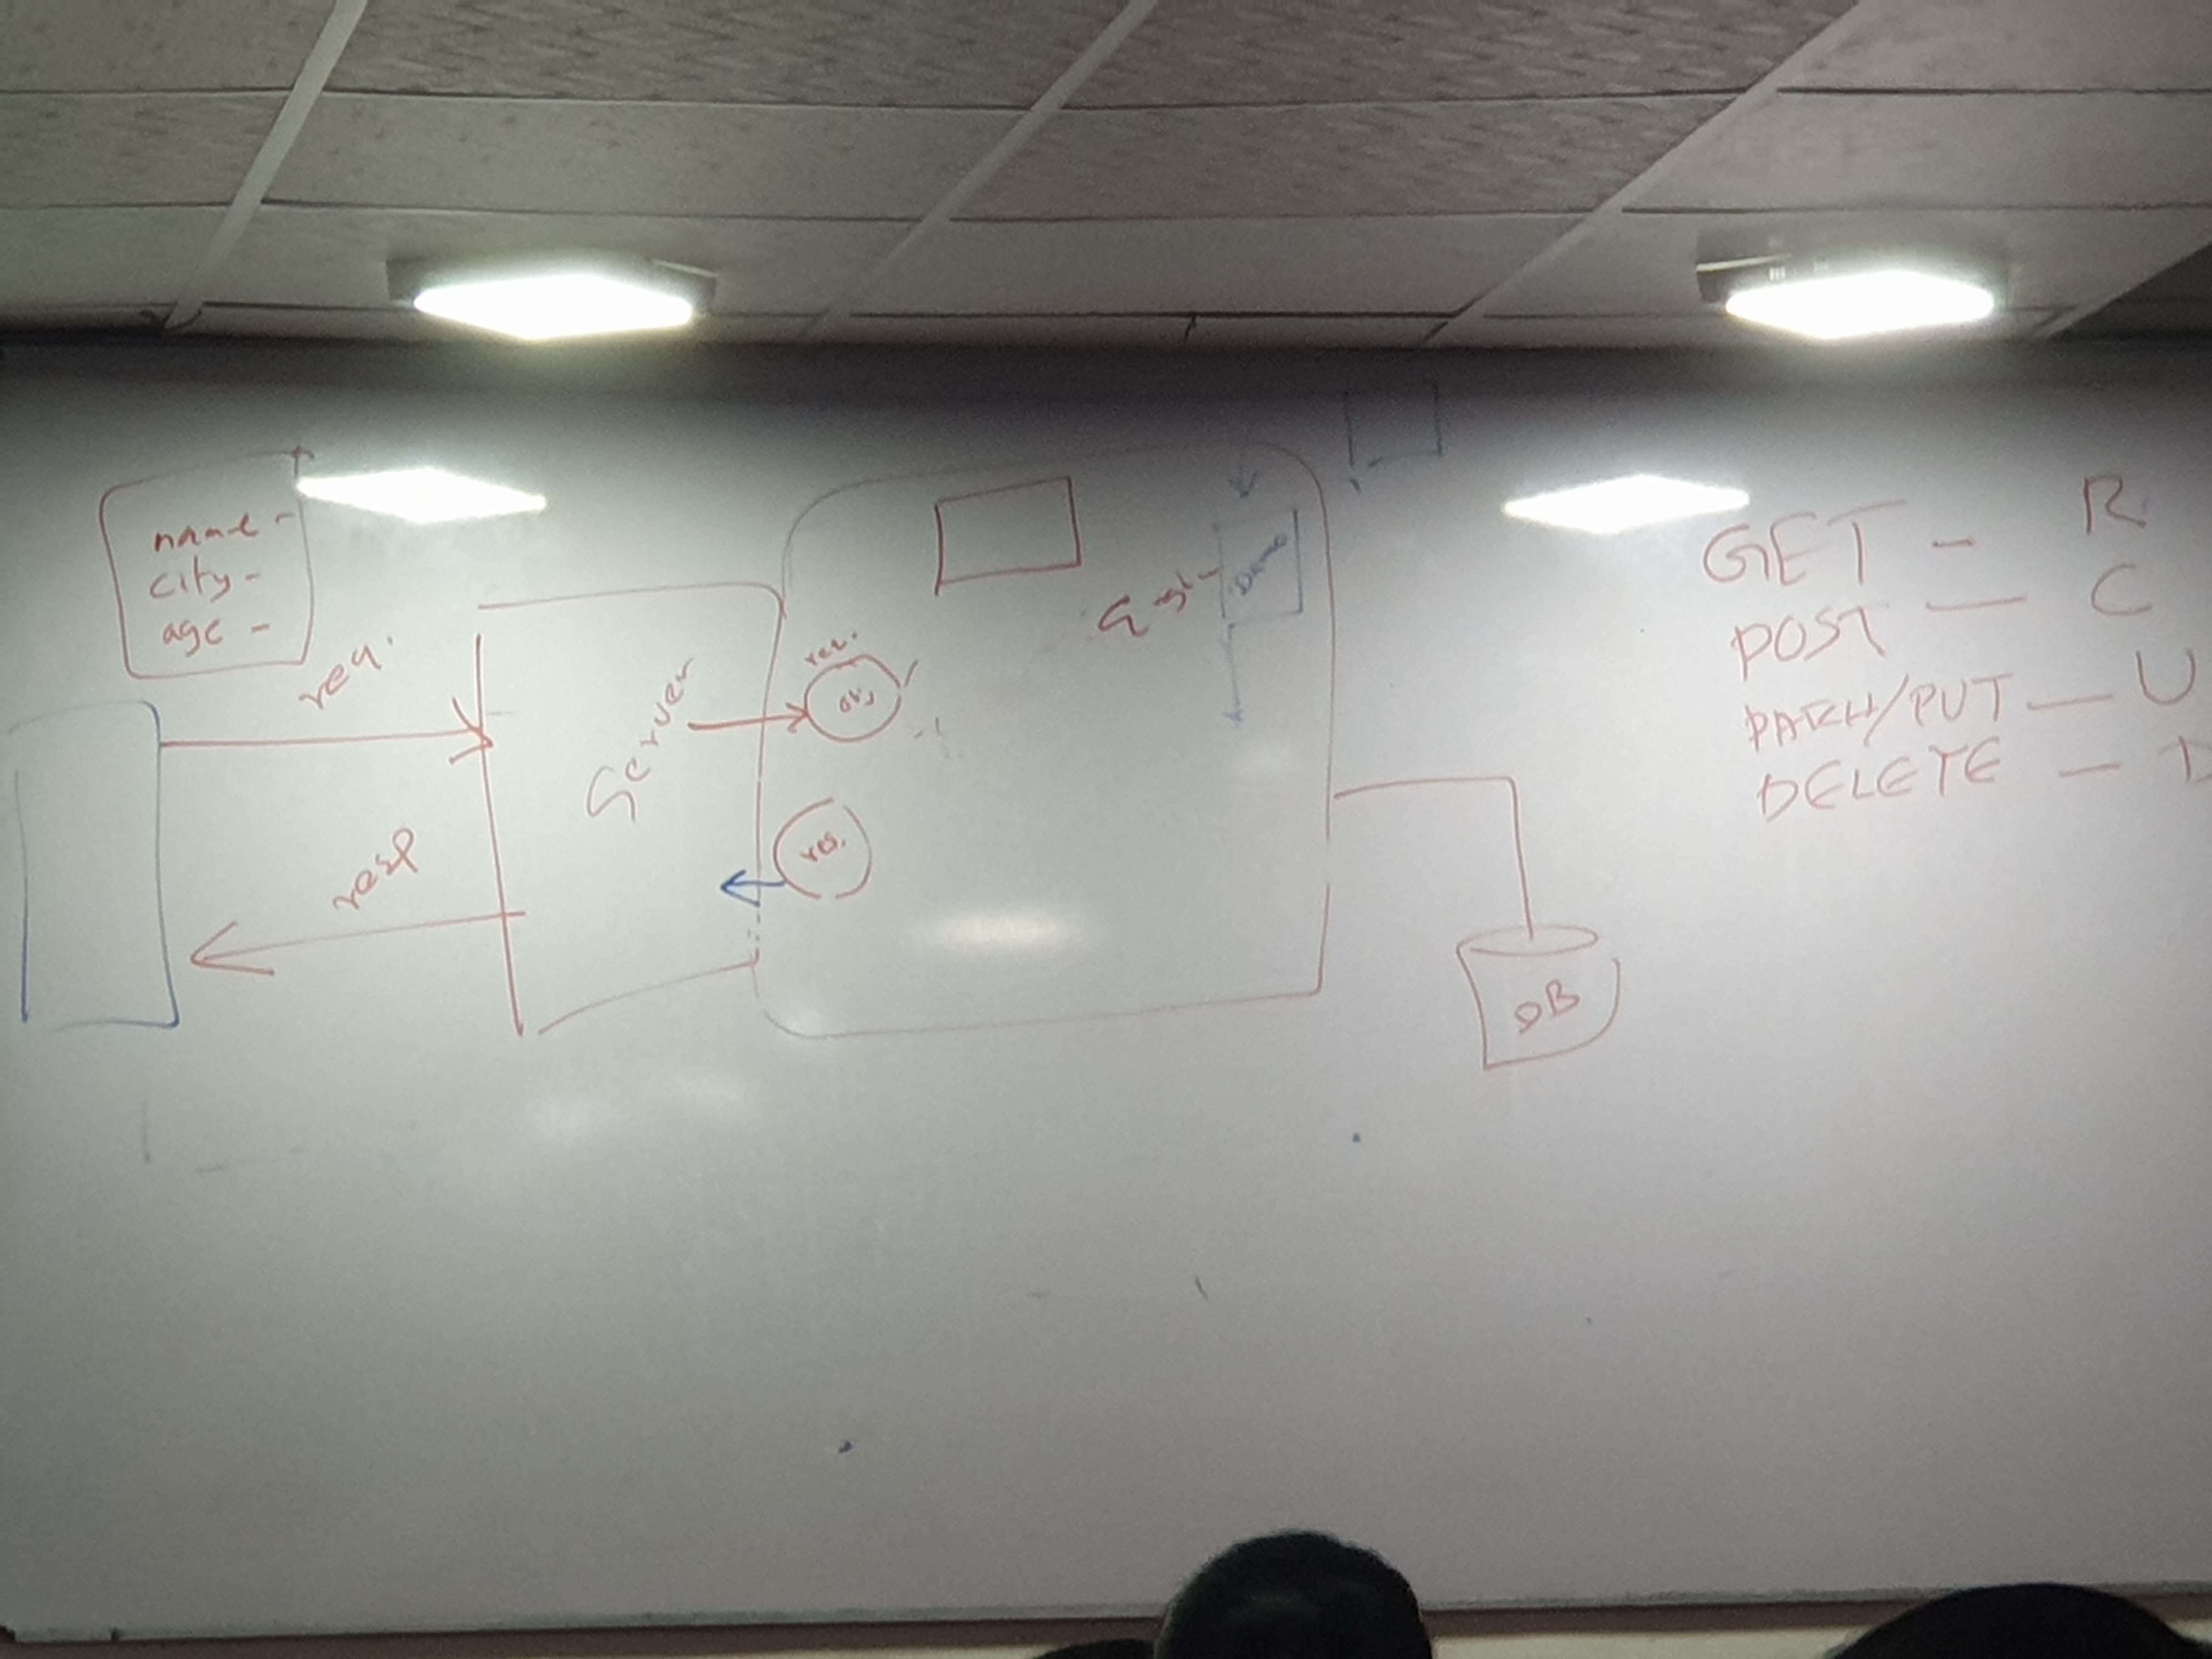 name -
city -
age -
req.
resp
Server
req.
obj
res.
Demo
DB
GET - R
POST - C
PATCH/PUT - U
DELETE - D